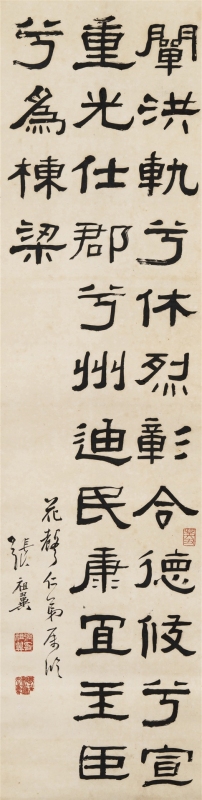 闡洪軌兮休烈彰合德兮宣
重光仕郡兮州迪民康宜王臣
兮為棟梁
花仁弟属
張祖翼